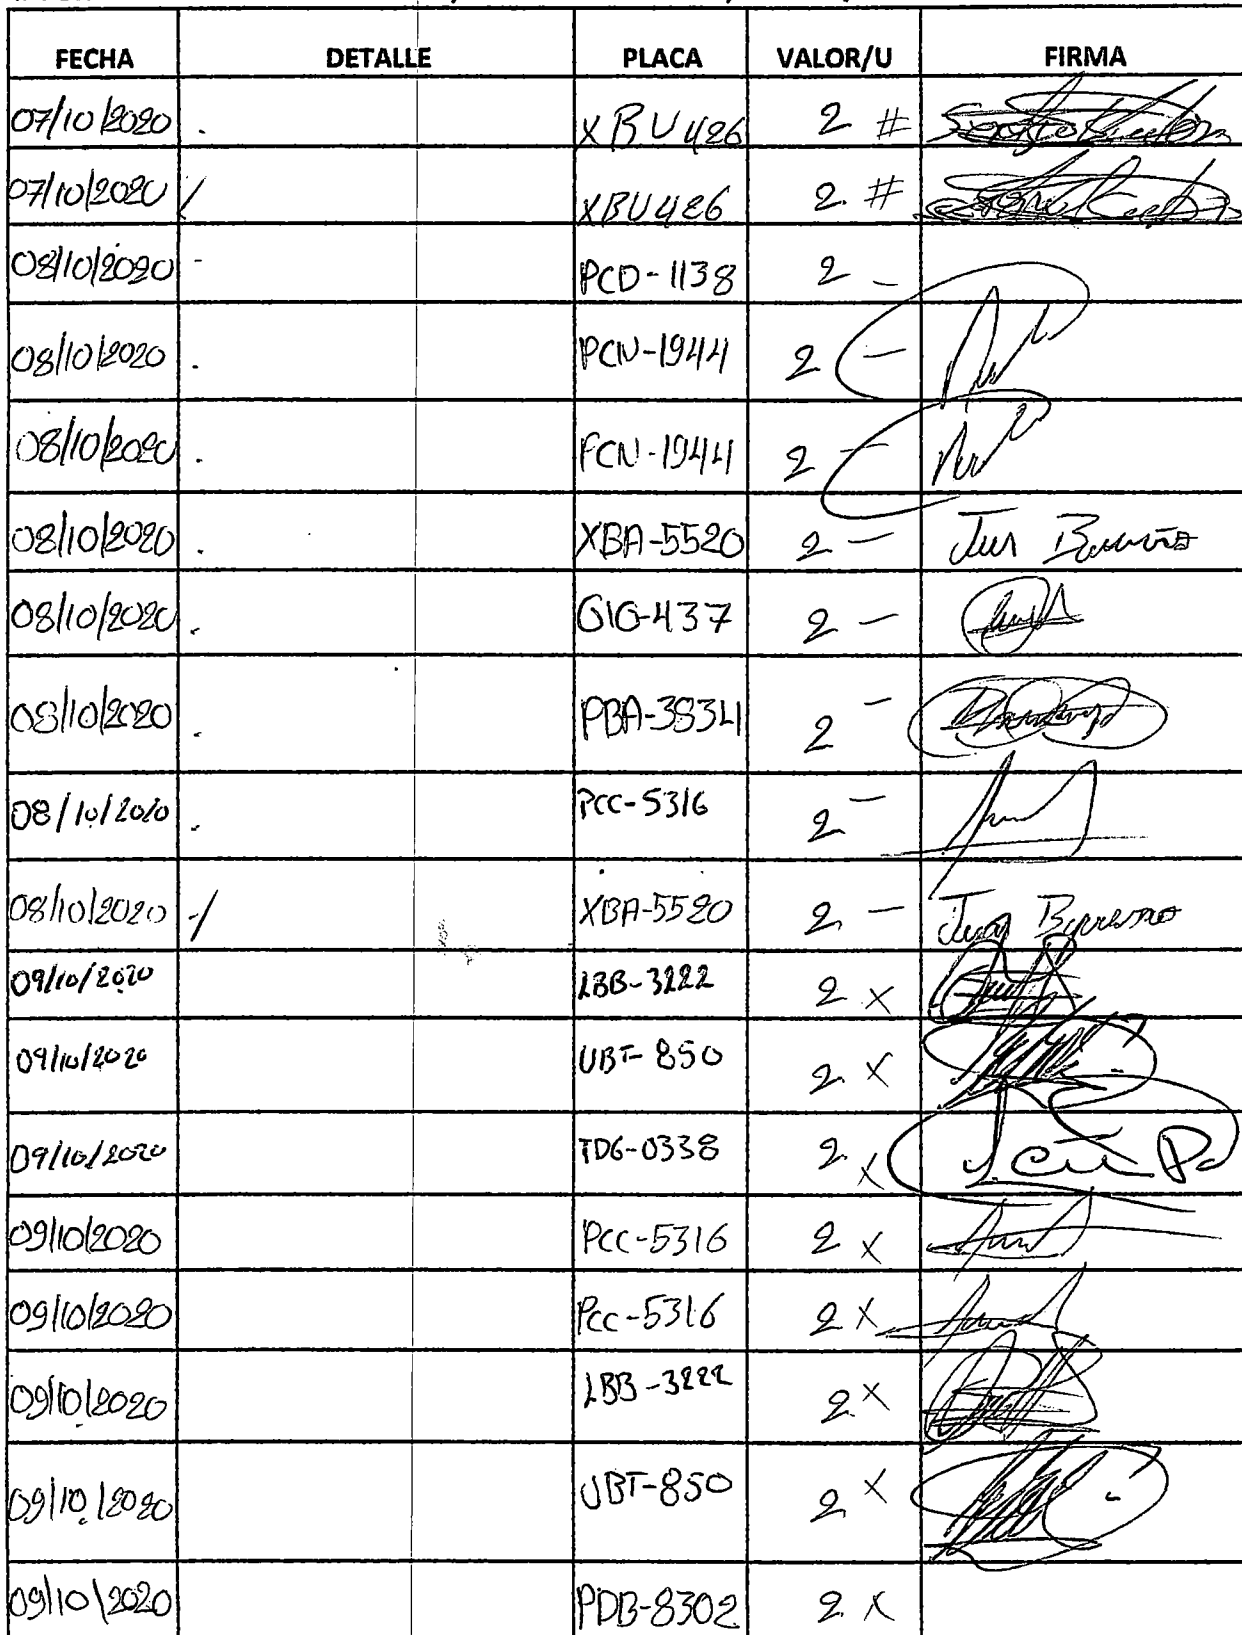 FECHA DETALLE PLACA VALOR/U FIRMA
07/10/2020 . XBU426 2 #
07/10/2020 / XBU426 2. #
08/10/2020 - PCD-1138 2 -
08/10/2020 . PCN-1944 2 -
08/10/2020 . PCN-1944 2 -
08/10/2020 . XBA-5520 2 -
08/10/2020 . GIG-437 2 -
08/10/2020 . PBA-3934 2 -
08/10/2020 . PCC-5316 2 -
08/10/2020 -/ XBA-5520 2 -
09/10/2020 LBB-3222 2 x
09/10/2020 UBT-850 2 x
09/10/2020 TDG-0338 2 x
09/10/2020 PCC-5316 2 x
09/10/2020 PCC-5316 2 x
09/10/2020 LBB-3222 2 x
09/10/2020 UBT-850 2 x
09/10/2020 PDB-8302 2 x